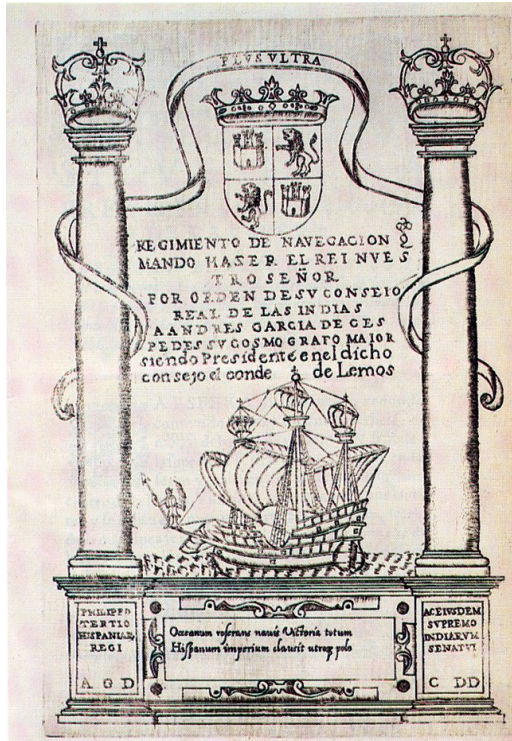 PLVS VLTRA
REGIMIENTO DE NAVEGACION Q̃
MANDO HAZER EL REI NVES
TRO SEÑOR
POR ORDEN DE SV CONSEIO
REAL DE LAS INDIAS
A ANDRES GARCIA DE CES
PEDES SV COSMOGRAFO MAIOR
siendo Presidente en el dicho
consejo el conde de Lemos
PHILIPPO
TERTIO
HISPANIAR̃
REGI
A G D
Oceanum reserans nauis Victoria totum
Hispanum imperium clausit utroq̃ polo
AC EIVSDEM
SVPREMO
INDIARVM
SENATVI
C DD